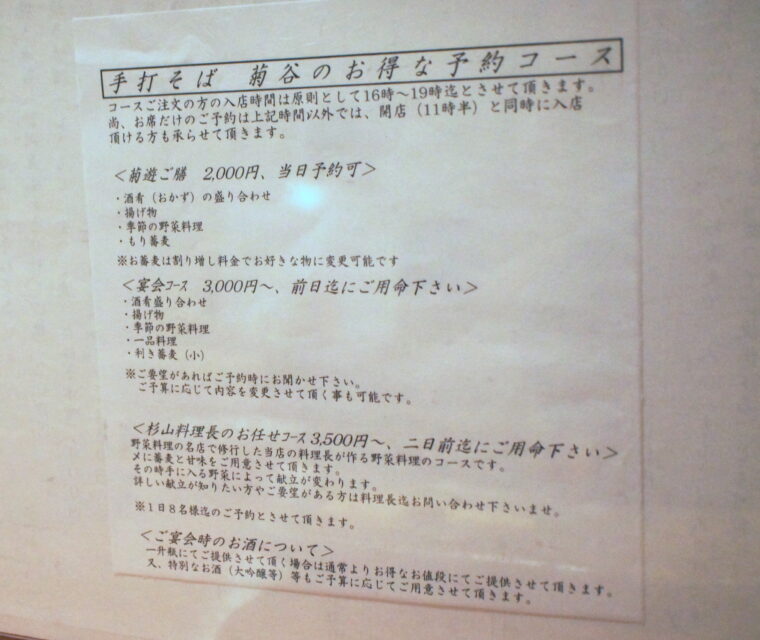 手打そば 菊谷のお得な予約コース
コースご注文の方の入店時間は原則として16時～19時迄とさせて頂きます。
尚、お席だけのご予約は上記時間以外では、開店（11時半）と同時に入店
頂ける方も承らせて頂きます。
＜菊遊ご膳 2,000円、当日予約可＞
・酒肴（おかず）の盛り合わせ
・揚げ物
・季節の野菜料理
・もり蕎麦
※お蕎麦は割り増し料金でお好きな物に変更可能です
＜宴会コース 3,000円～、前日迄にご用命下さい＞
・酒肴盛り合わせ
・揚げ物
・季節の野菜料理
・一品料理
・利き蕎麦（小）
※ご要望があればご予約時にお聞かせ下さい。
ご予算に応じて内容を変更させて頂く事も可能です。
＜杉山料理長のお任せコース3,500円～、二日前迄にご用命下さい＞
野菜料理の名店で修行した当店の料理長が作る野菜料理のコースです。
〆に蕎麦と甘味をご用意させて頂きます。
その時手に入る野菜によって献立が変わります。
詳しい献立が知りたい方やご要望がある方は料理長迄お問い合わせ下さいませ。
※１日８名様迄のご予約とさせて頂きます。
＜ご宴会時のお酒について＞
一升瓶にてご提供させて頂く場合は通常よりお得なお値段にてご提供させて頂きます。
又、特別なお酒（大吟醸等）等もご予算に応じてご用意させて頂きます。